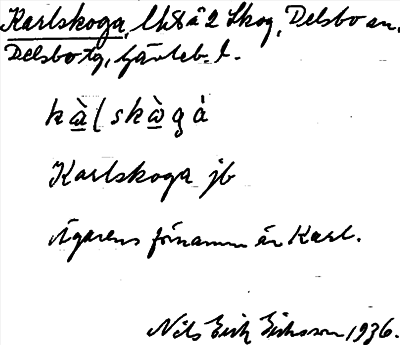 Karlskoga, lht å 2 Skog, Delsbo sn,
Delsbo tg, Gävleb. l.
kàlskògá
Karlskoga jb
Ägarens förnamn är Karl.
Nils Erik Eriksson 1936.